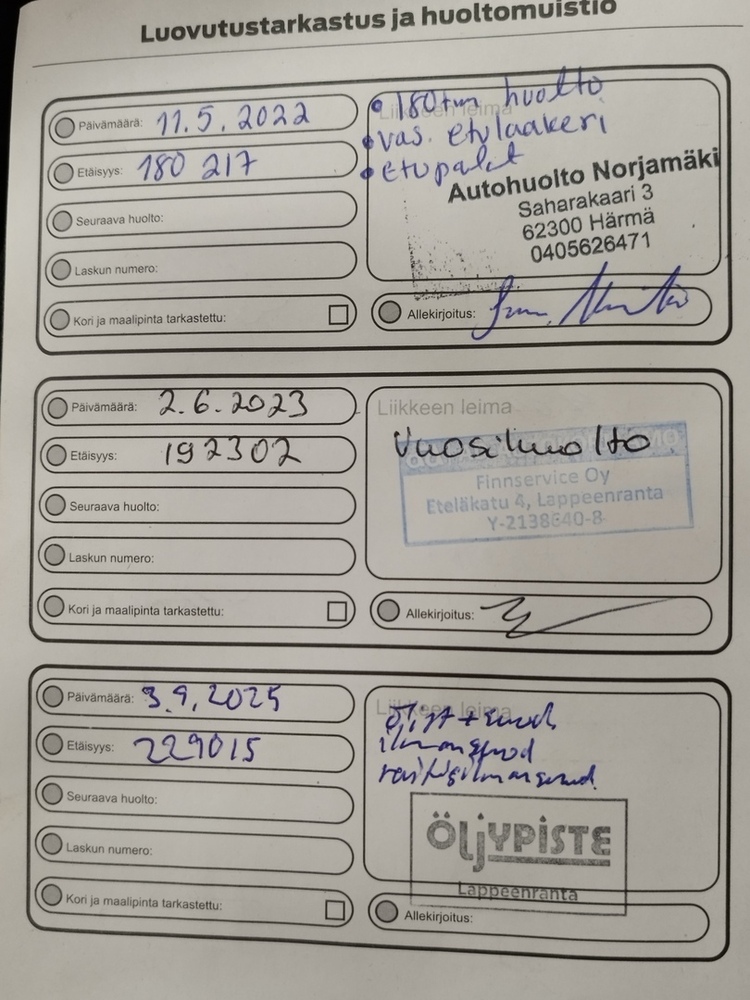 Luovutustarkastus ja huoltomuistio
Päivämäärä: 11.5.2022
Etäisyys: 180 217
Seuraava huolto:
Laskun numero:
Kori ja maalipinta tarkastettu:
Liikkeen leima
• 180tkm huolto
• vas. etulaakeri
• etupalat
Autohuolto Norjamäki
Saharakaari 3
62300 Härmä
0405626471
Allekirjoitus:
Päivämäärä: 2.6.2023
Etäisyys: 192302
Seuraava huolto:
Laskun numero:
Kori ja maalipinta tarkastettu:
Liikkeen leima
Vuosihuolto
Finnservice Oy
Eteläkatu 4, Lappeenranta
Allekirjoitus:
Päivämäärä: 3.9.2025
Etäisyys: 229015
Seuraava huolto:
Laskun numero:
Kori ja maalipinta tarkastettu:
Liikkeen leima
Öljyt + suod.
ilmansuod
raitisilmansuod.
ÖLJYPISTE
Lappeenranta
Allekirjoitus: